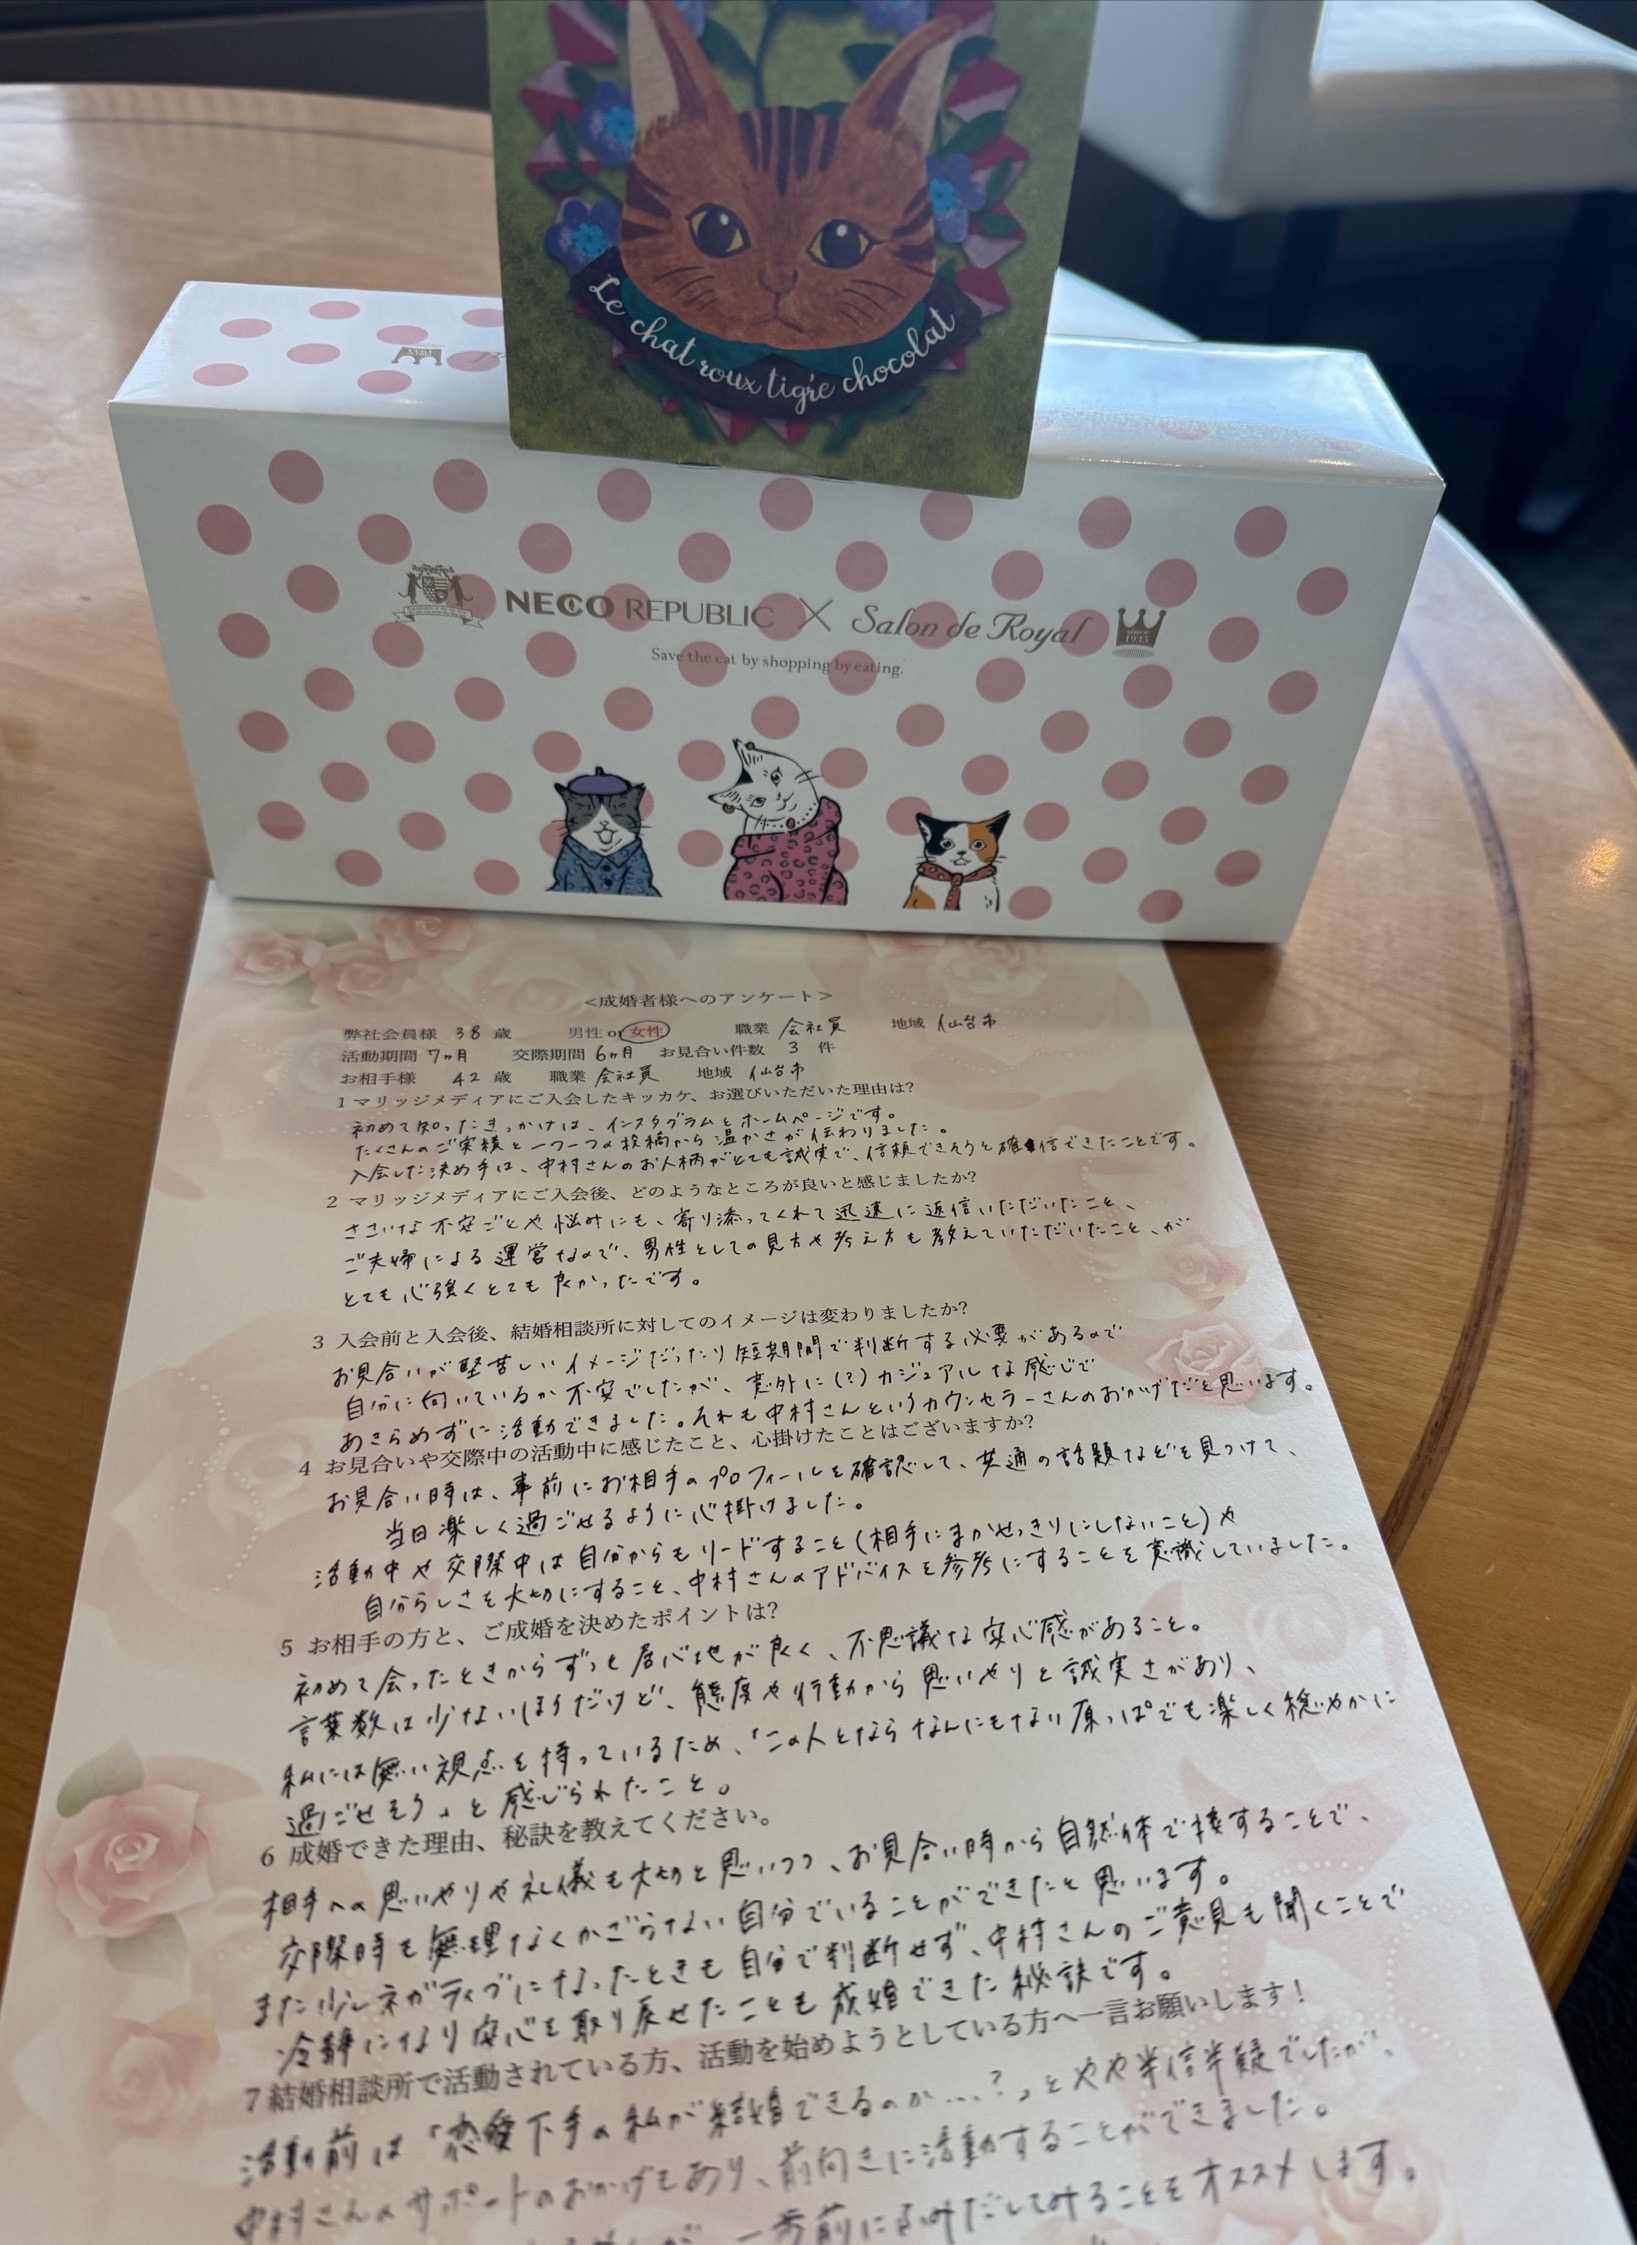 Le chat roux tigré chocolat
NECO REPUBLIC × Salon de Royal
since 1935
Save the cat by shopping by eating.
<成婚者様へのアンケート>
弊社会員様 38 歳 男性 or 女性 職業 会社員 地域 仙台市
活動期間 7ヶ月 交際期間 6ヶ月 お見合い件数 3 件
お相手様 42 歳 職業 会社員 地域 仙台市
1 マリッジメディアにご入会したキッカケ、お選びいただいた理由は?
初めて知ったきっかけは、インスタグラムとホームページです。
たくさんのご実績と一つ一つの投稿から温かさが伝わりました。
入会した決め手は、中村さんのお人柄がとても誠実で、信頼できそうと確信できたことです。
2 マリッジメディアにご入会後、どのようなところが良いと感じましたか?
ささいな不安ごとや悩みにも、寄り添ってくれて迅速に返信いただいたこと、
ご夫婦による運営なので、男性としての見方や考え方も教えていただいたこと、が
とても心強くとても良かったです。
3 入会前と入会後、結婚相談所に対してのイメージは変わりましたか?
お見合いが堅苦しいイメージだったり短期間で判断する必要があるので
自分に向いているか不安でしたが、意外に(?)カジュアルな感じで
あきらめずに活動できました。それも中村さんというカウンセラーさんのおかげだと思います。
4 お見合いや交際中の活動中に感じたこと、心掛けたことはございますか?
お見合い時は、事前にお相手のプロフィールを確認して、共通の話題などを見つけて、
当日楽しく過ごせるように心掛けました。
活動中や交際中は自分からもリードすること(相手にまかせっきりにしないこと)や
自分らしさを大切にすること、中村さんのアドバイスを参考にすることを意識していました。
5 お相手の方と、ご成婚を決めたポイントは?
初めて会ったときからずっと居心地が良く、不思議な安心感があること。
言葉数は少ないほうだけど、態度や行動から思いやりと誠実さがあり、
私には無い視点を持っているため、「この人とならなんにもない原っぱでも楽しく穏やかに
過ごせそう」と感じられたこと。
6 成婚できた理由、秘訣を教えてください。
相手への思いやりや礼儀も大切と思いつつ、お見合い時から自然体で接することで、
交際時も無理なくかざらない自分でいることができたと思います。
また少しネガティブになったときも自分で判断せず、中村さんのご意見も聞くことで
冷静になり安心を取り戻せたことも成婚できた秘訣です。
7 結婚相談所で活動されている方、活動を始めようとしている方へ一言お願いします!
活動前は「恋愛下手の私が結婚できるのか…?」とやや半信半疑でしたが、
中村さんのサポートのおかげもあり、前向きに活動することができました。
一歩前にふみだしてみることをオススメします。